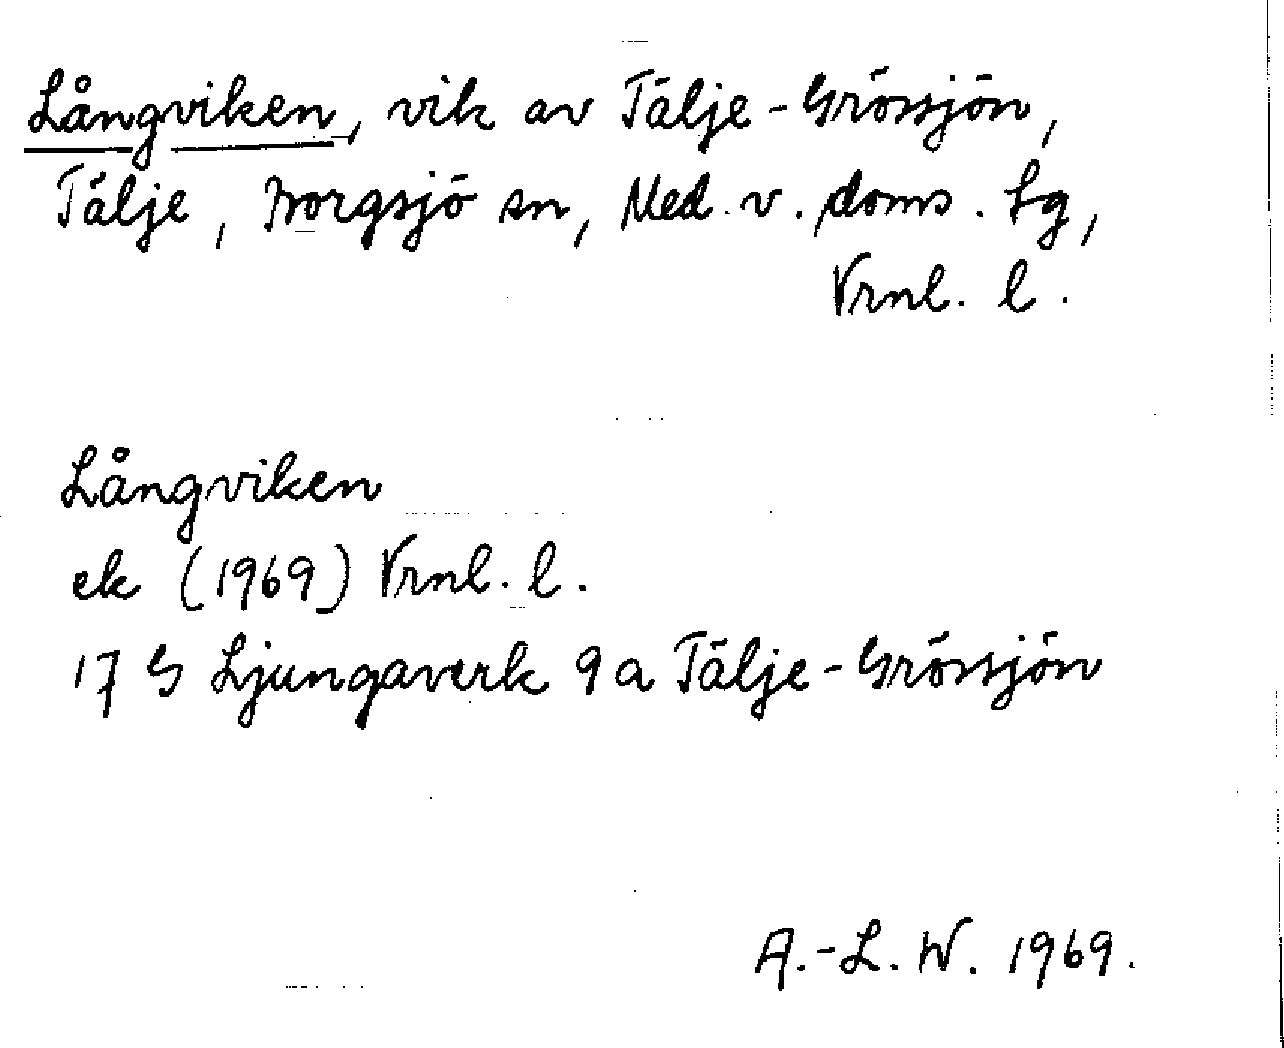 Långviken, vik av Tälje-Grössjön,
Tälje, Borgsjö sn, Med. v. doms. tg,
Vrnl. l.
Långviken
ek (1969) Vrnl. l.
17 G Ljungaverk 9a Tälje-Grössjön
A.-L. W. 1969.